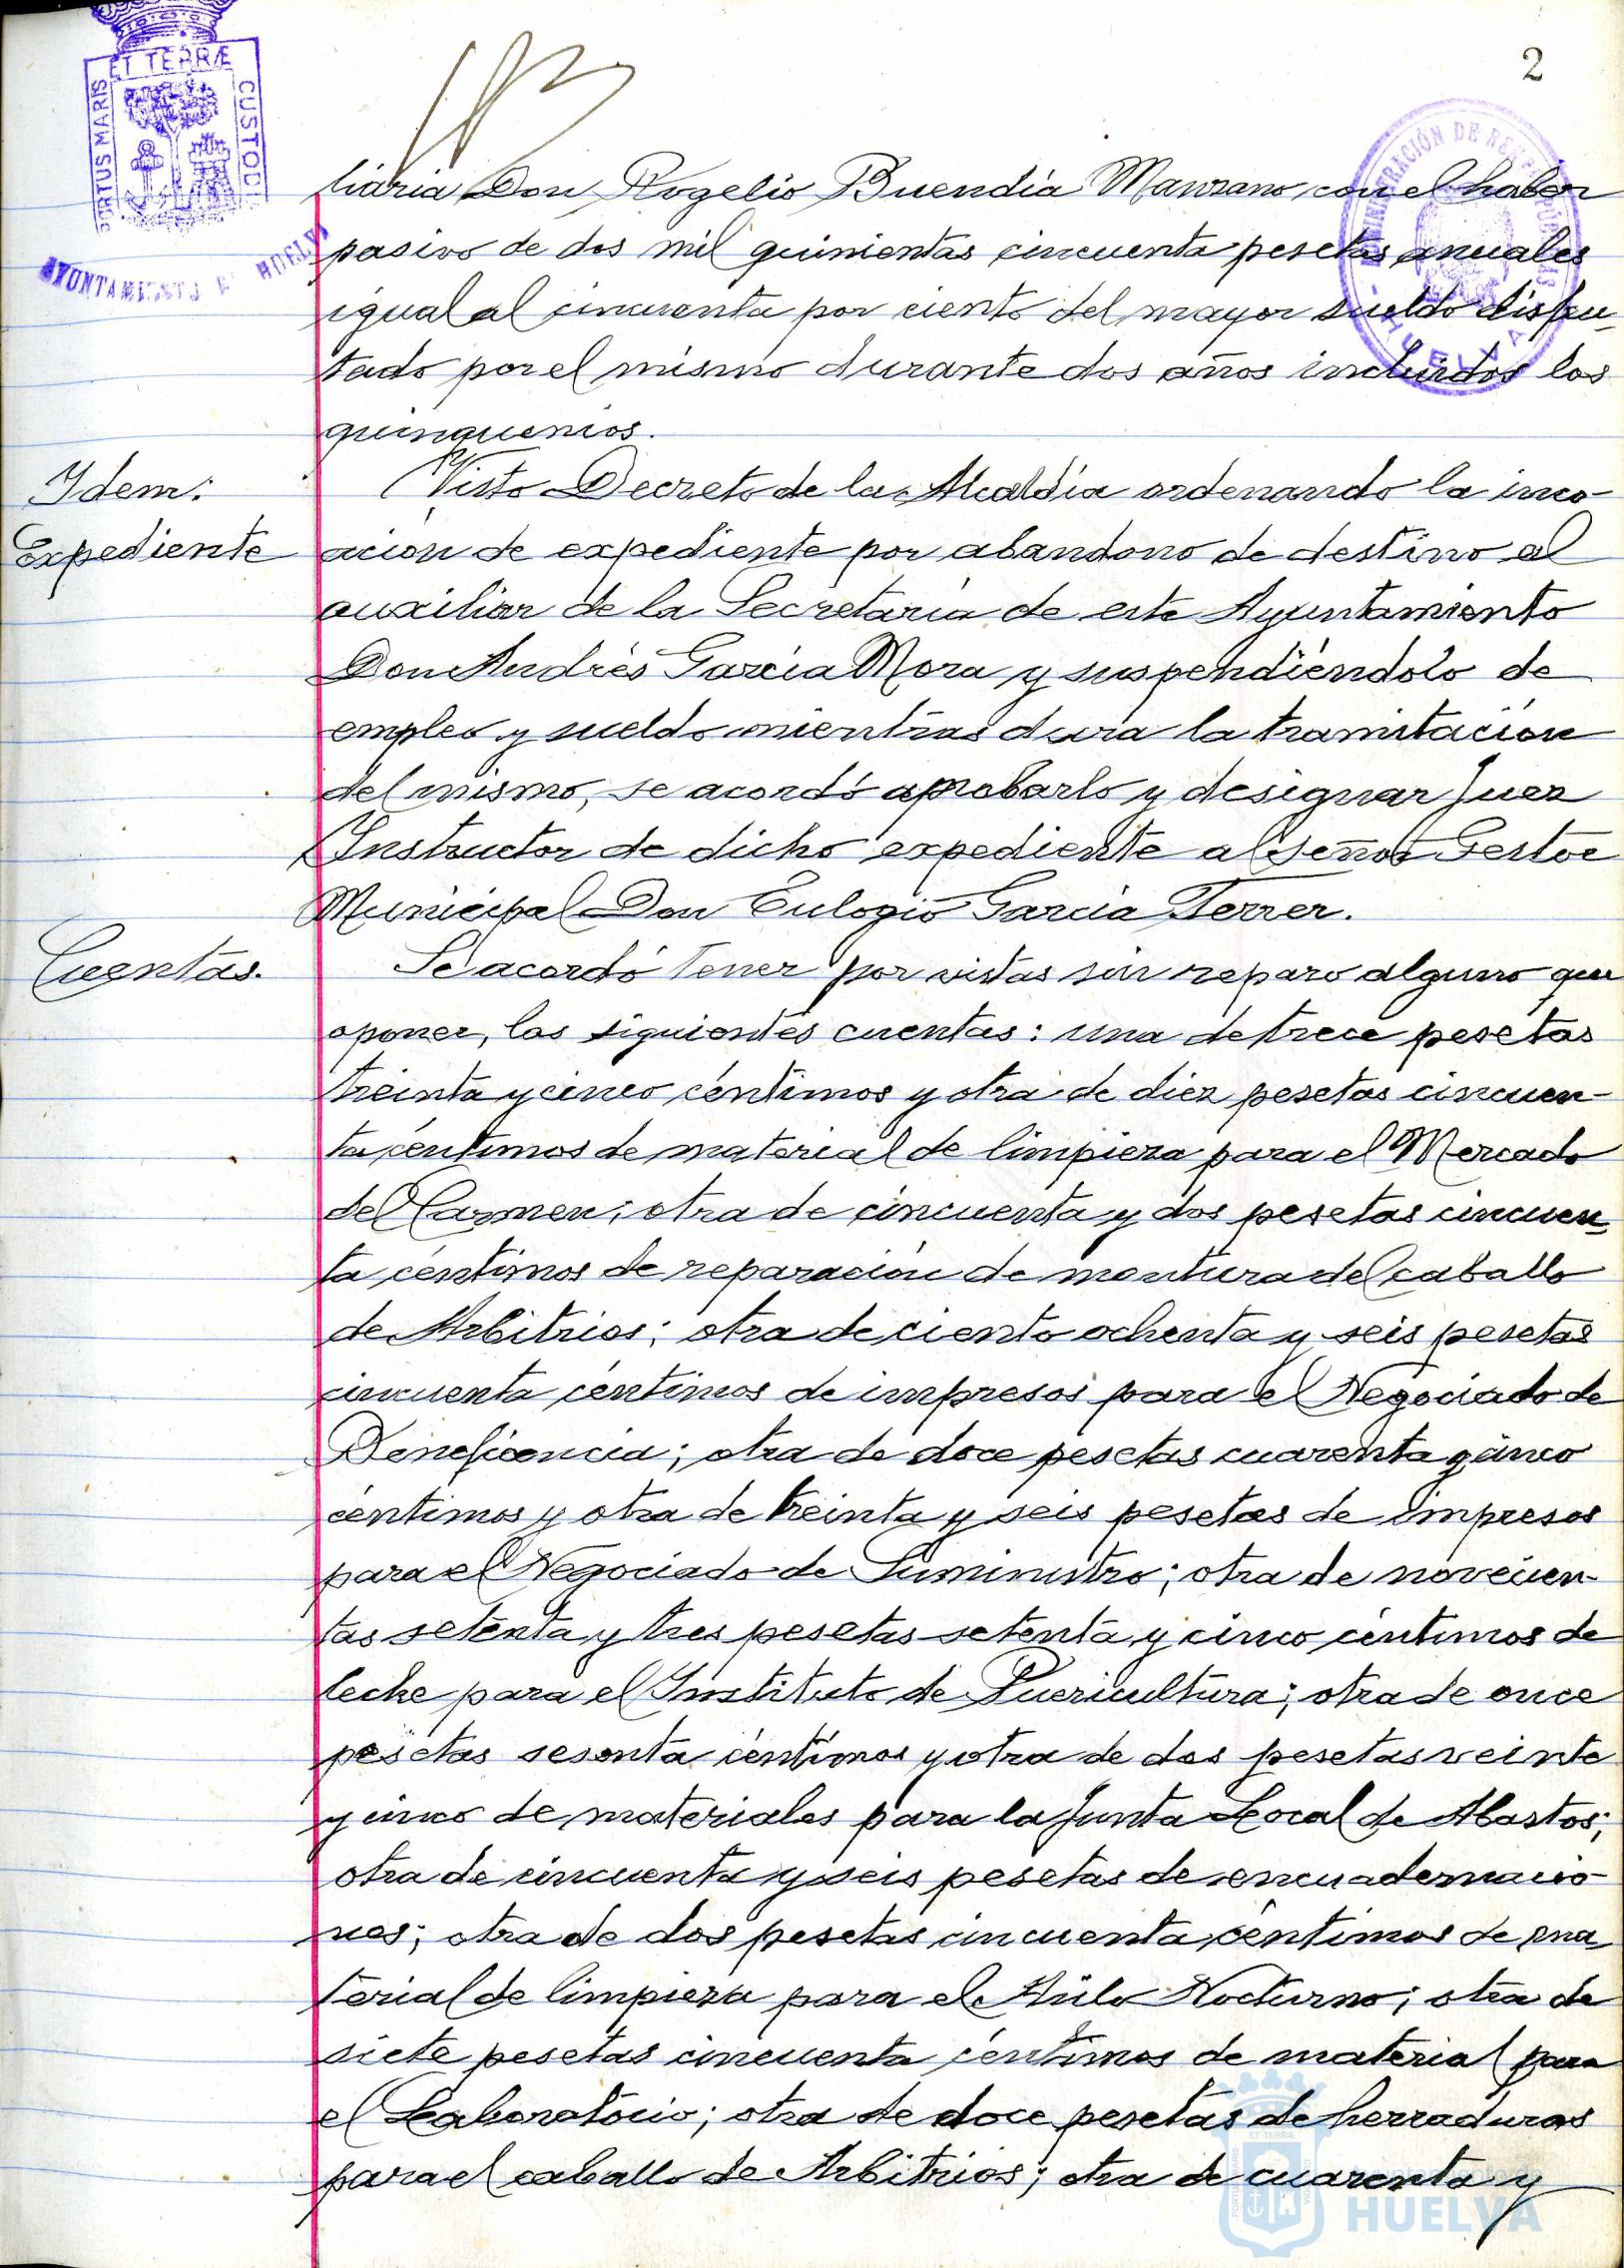 2
ET TERRÆ
PORTUS MARIS
CUSTODI
AYUNTAMIENTO DE HUELVA
HUELVA
liaria Don Rogelio Buendía Manzano, con el haber
pasivo de dos mil quinientas cincuenta pesetas anuales
igual al cincuenta por ciento del mayor sueldo disfru-
tado por el mismo durante dos años incluidos los
quinquenios.
Idem:
Expediente
Visto Decreto de la Alcaldía ordenando la inco-
ación de expediente por abandono de destino al
auxiliar de la Secretaría de este Ayuntamiento
Don Andrés García Mora y suspendiéndolo de
empleo y sueldo mientras dura la tramitación
del mismo, se acordó aprobarlo y designar Juez
Instructor de dicho expediente al señor Gestor
Municipal Don Eulogio García Ferrer.
Cuentas.
Se acordó tener por vistas sin reparo alguno que
oponer, las siguientes cuentas: una de trece pesetas
treinta y cinco céntimos y otra de diez pesetas cincuen-
ta céntimos de material de limpieza para el Mercado
del Carmen; otra de cincuenta y dos pesetas cincuen-
ta céntimos de reparación de montura del caballo
de Arbitrios; otra de ciento ochenta y seis pesetas
cincuenta céntimos de impresos para el Negociado de
Beneficencia; otra de doce pesetas cuarenta y cinco
céntimos y otra de treinta y seis pesetas de impresos
para el Negociado de Suministro; otra de novecien-
tas setenta y tres pesetas setenta y cinco céntimos de
leche para el Instituto de Puericultura; otra de once
pesetas sesenta céntimos y otra de dos pesetas veinte
y cinco de materiales para la Junta Local de Abastos;
otra de cincuenta y seis pesetas de encuadernacio-
nes; otra de dos pesetas cincuenta céntimos de ma-
terial de limpieza para el Asilo Nocturno; otra de
siete pesetas cincuenta céntimos de material para
el Laboratorio; otra de doce pesetas de herraduras
para el caballo de Arbitrios; otra de cuarenta y
HUELVA